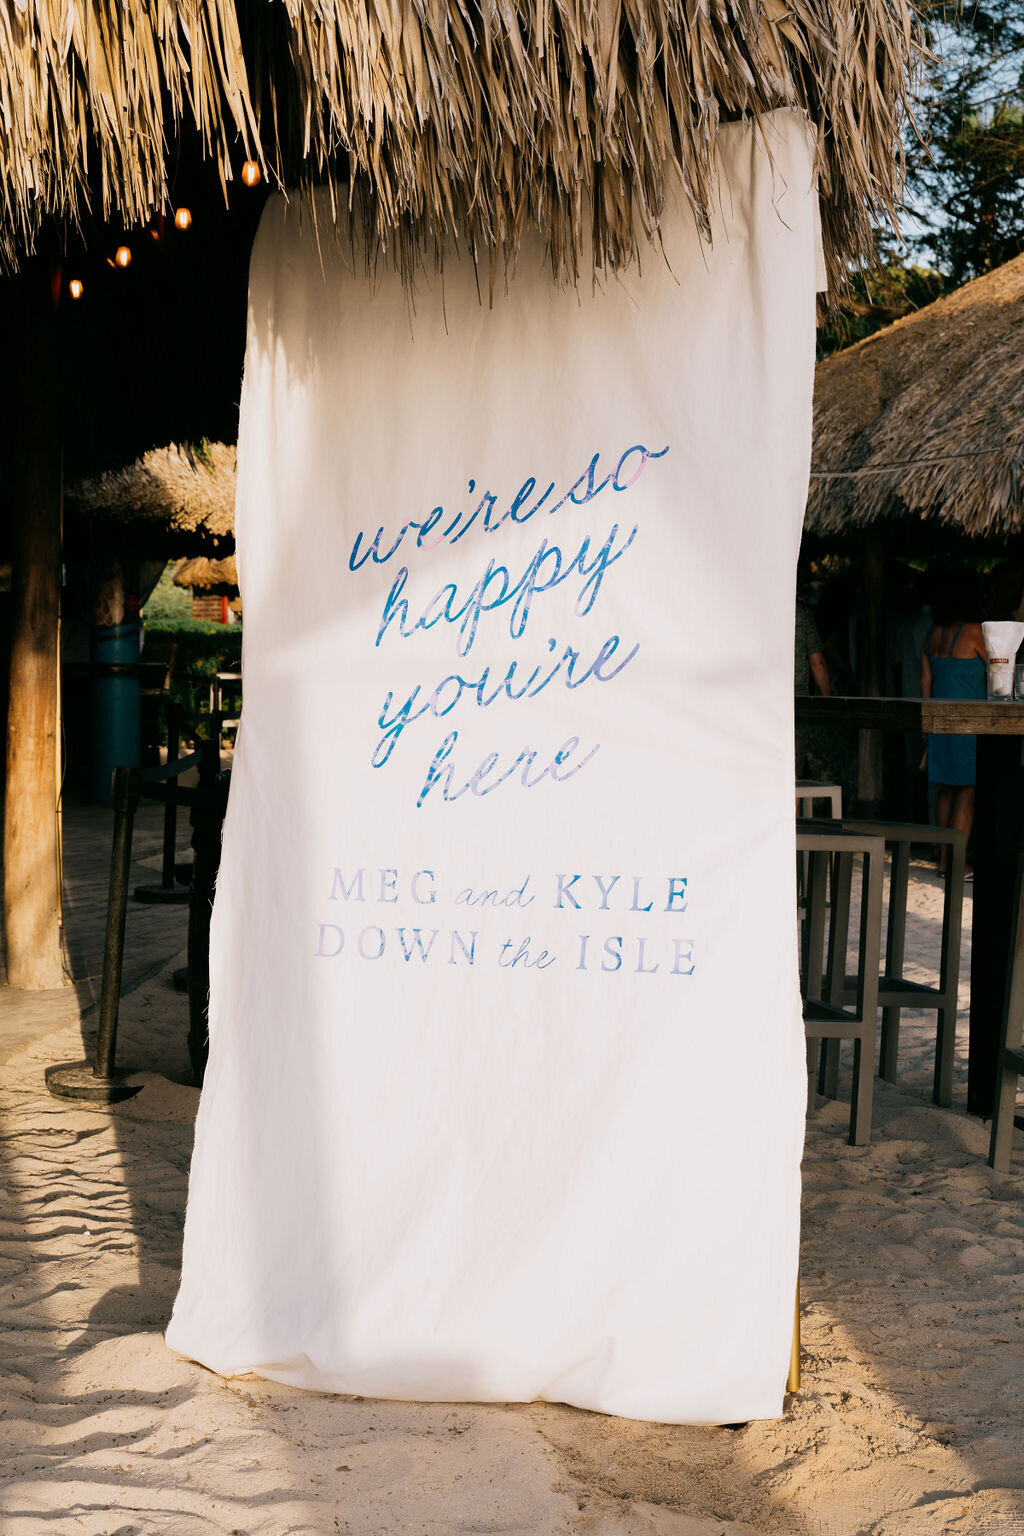 we're so
happy
you're
here
MEG and KYLE
DOWN the ISLE